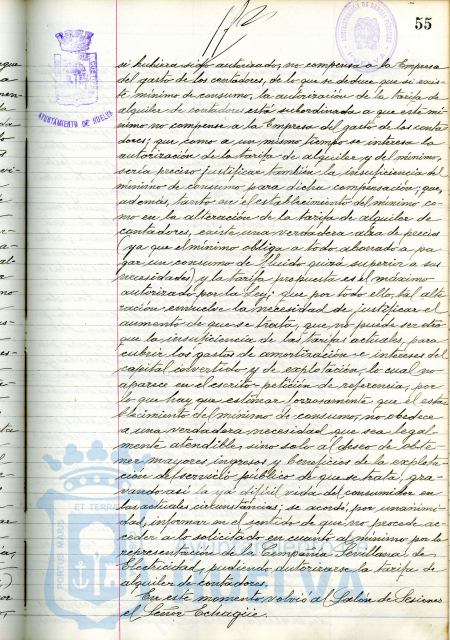 55
AYUNTAMIENTO DE HUELVA
si hubiera sido autorizado, no compensa a la Empresa
del gasto de los contadores, de lo que se deduce que si exis-
te mínimo de consumo, la autorización de la tarifa de
alquiler de contadores está subordinada a que este mí-
nimo no compense a la Empresa del gasto de los conta-
dores; que como a un mismo tiempo se interesa la
autorización de la tarifa de alquiler y del mínimo,
sería preciso justificar también la insuficiencia del
mínimo de consumo para dicha compensación; que,
además, tanto en el establecimiento del mínimo co-
mo en la alteración de la tarifa de alquiler de
contadores, existe una verdadera alza de precios
(ya que el mínimo obliga a todo abonado a pa-
gar un consumo de fluido quizá superior a sus
necesidades) y la tarifa propuesta es el máximo
autorizado por la Ley; que por todo ello, tal alte-
ración envuelve la necesidad de justificar el
aumento de que se trata, que no puede ser otro
que la insuficiencia de las tarifas actuales, para
cubrir los gastos de amortización e intereses del
capital invertido y de explotación, lo cual no
aparece en el escrito-petición de referencia, por
lo que hay que estimar forzosamente que el esta-
blecimiento del mínimo de consumo, no obedece
a una verdadera necesidad que sea legal-
mente atendible, sino solo al deseo de obte-
ner mayores ingresos y beneficios de la explota-
ción del servicio público de que se trata, gra-
vando así la ya difícil vida del consumidor en
las actuales circunstancias; se acordó, por unanimi-
dad, informar en el sentido de que no procede ac-
ceder a lo solicitado en cuanto al mínimo por la
representación de la Compañía Sevillana de
Electricidad, pudiendo autorizarse la tarifa de
alquiler de contadores.
En este momento volvió al Salón de Sesiones
el Señor Echagüe.
ET TERRAE
PORTUS MARIS
Ayuntamiento de
HUELVA